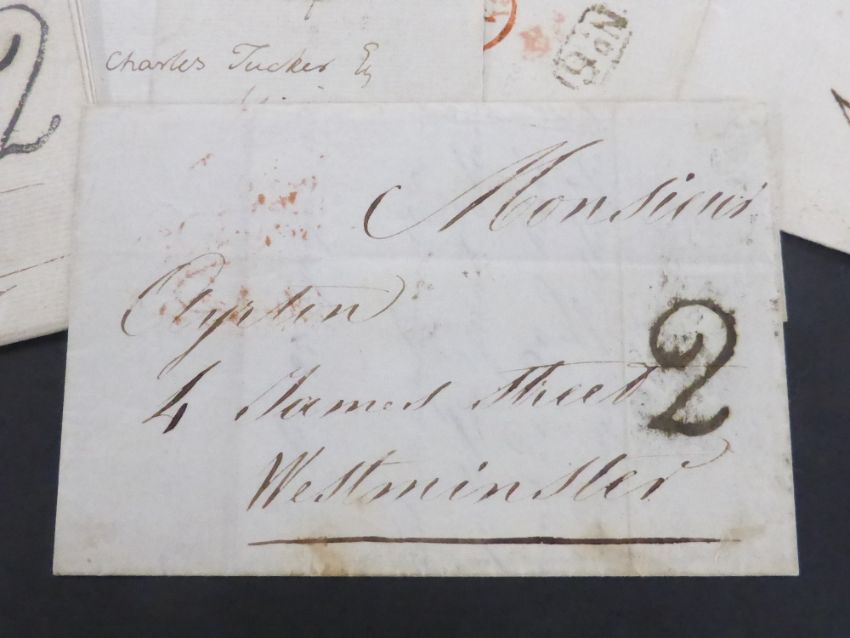 Charles Tucker Esq
No. 6
2
Monsieur
Ayrton
2
4 James Street
Westminster